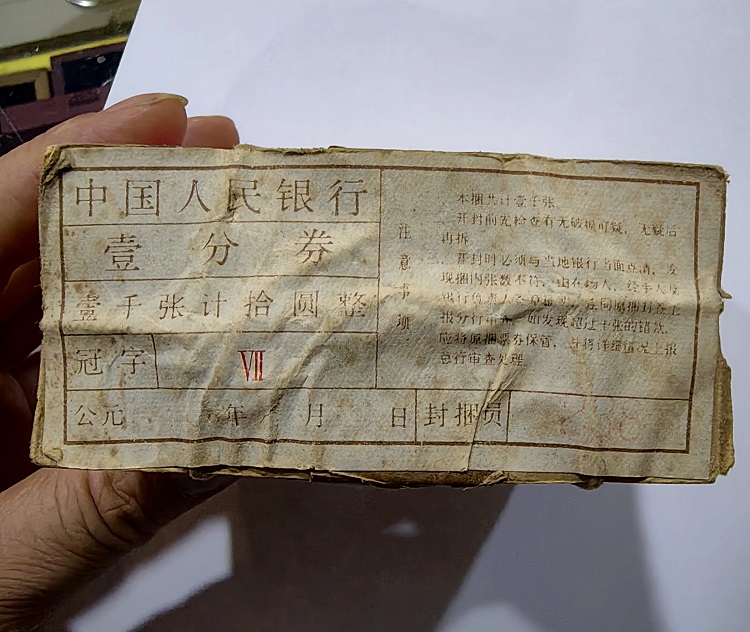 中国人民银行
壹分券
壹千张计拾圆整
冠字 VII
公元 年 月 日 封捆员
注意事项
本捆共计壹千张
开封前先检查有无破损可疑,无疑后
再拆
开封时必须与当地银行当面点清,发
现捆内张数不符,由在场人、经手人及
银行负责人
报分行审查 如发现超过十张的错款
应将原捆票券保管,并将详细情况上报
总行审查处理